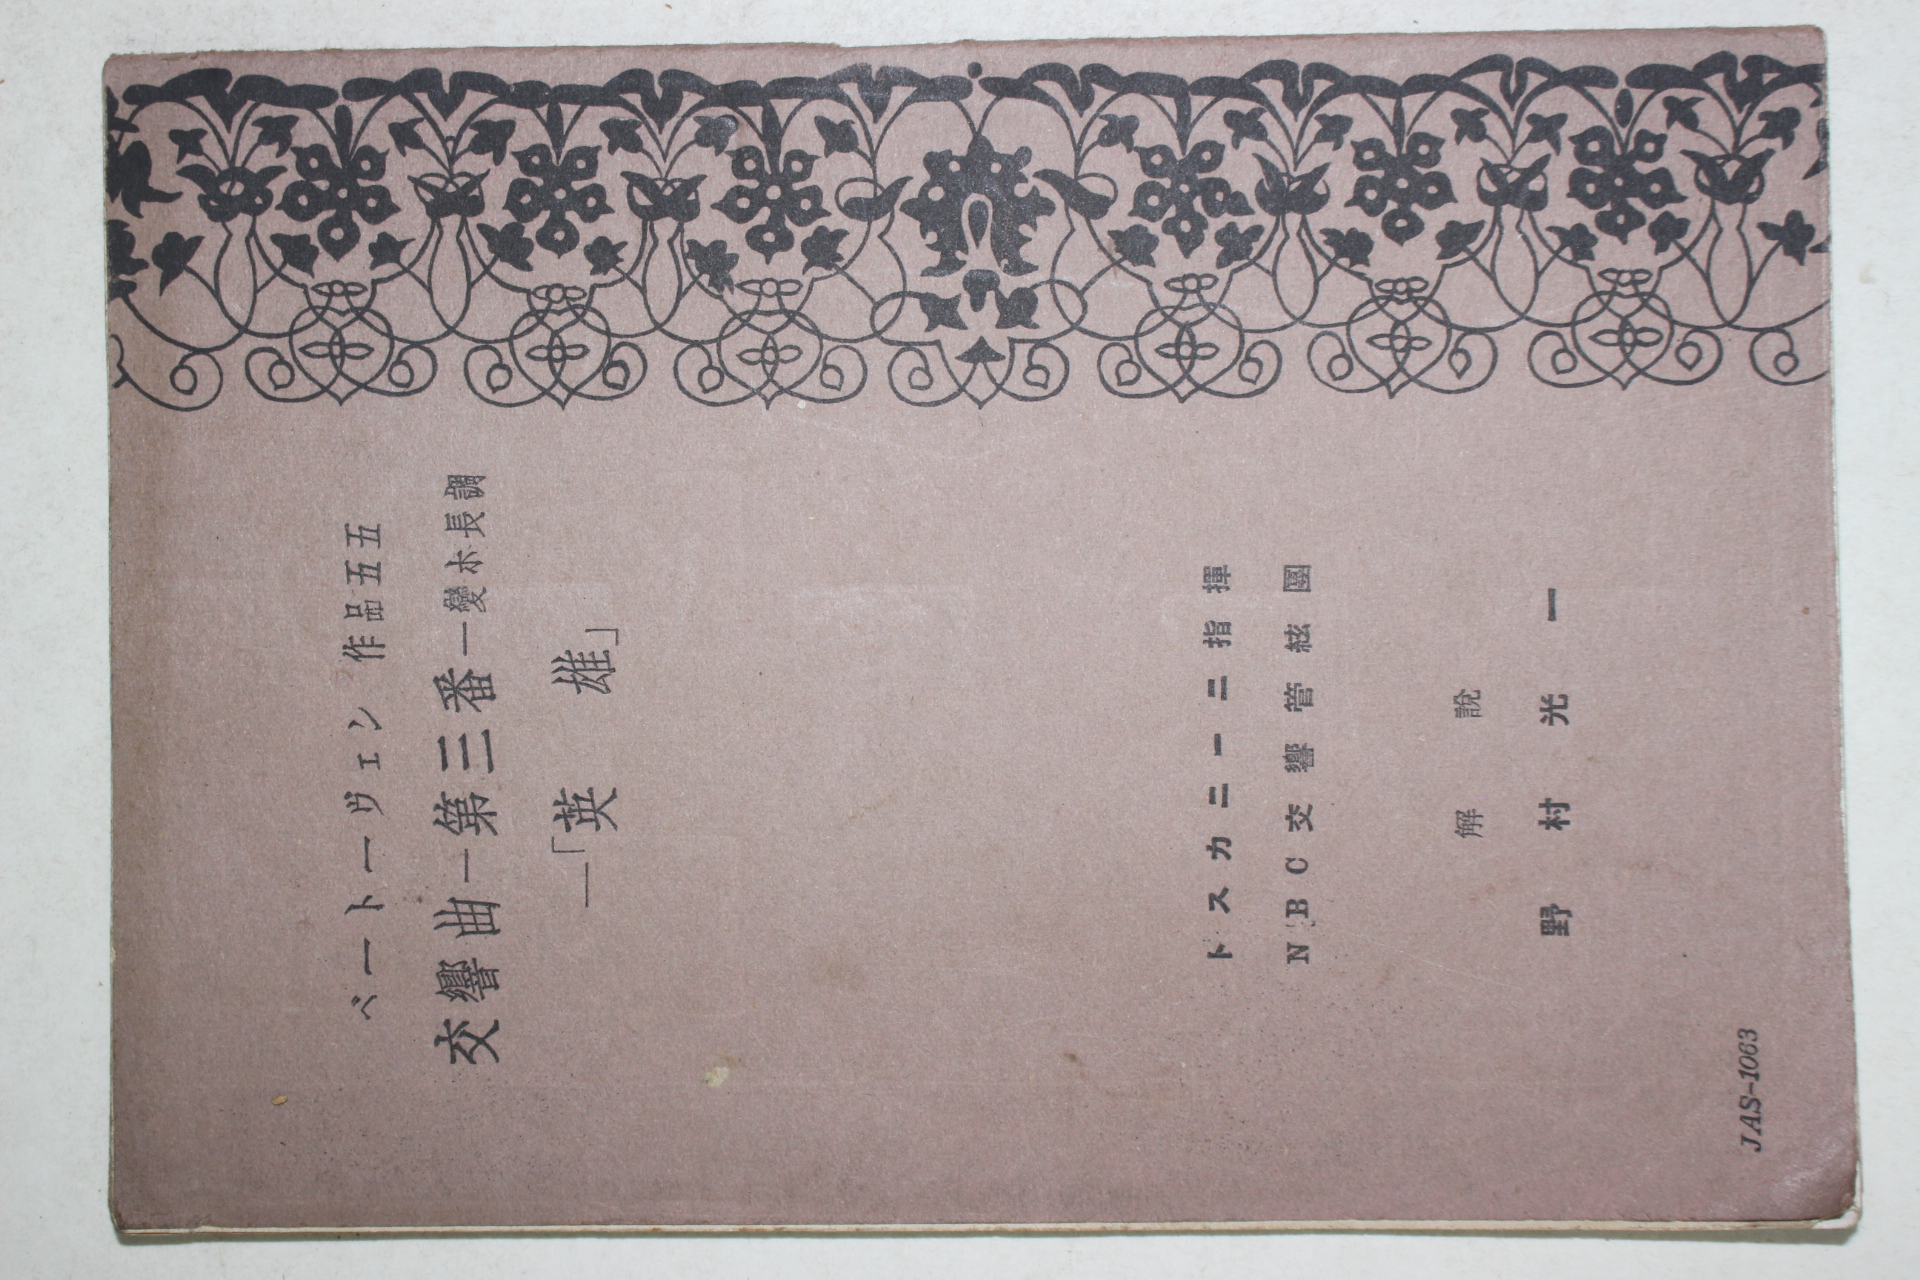 ベートーヴェン 作品五五
交響曲―第三番―變ホ長調
―「英雄」
トスカニーニ指揮
NBC交響管絃團
解説
野村光一
JAS-1063